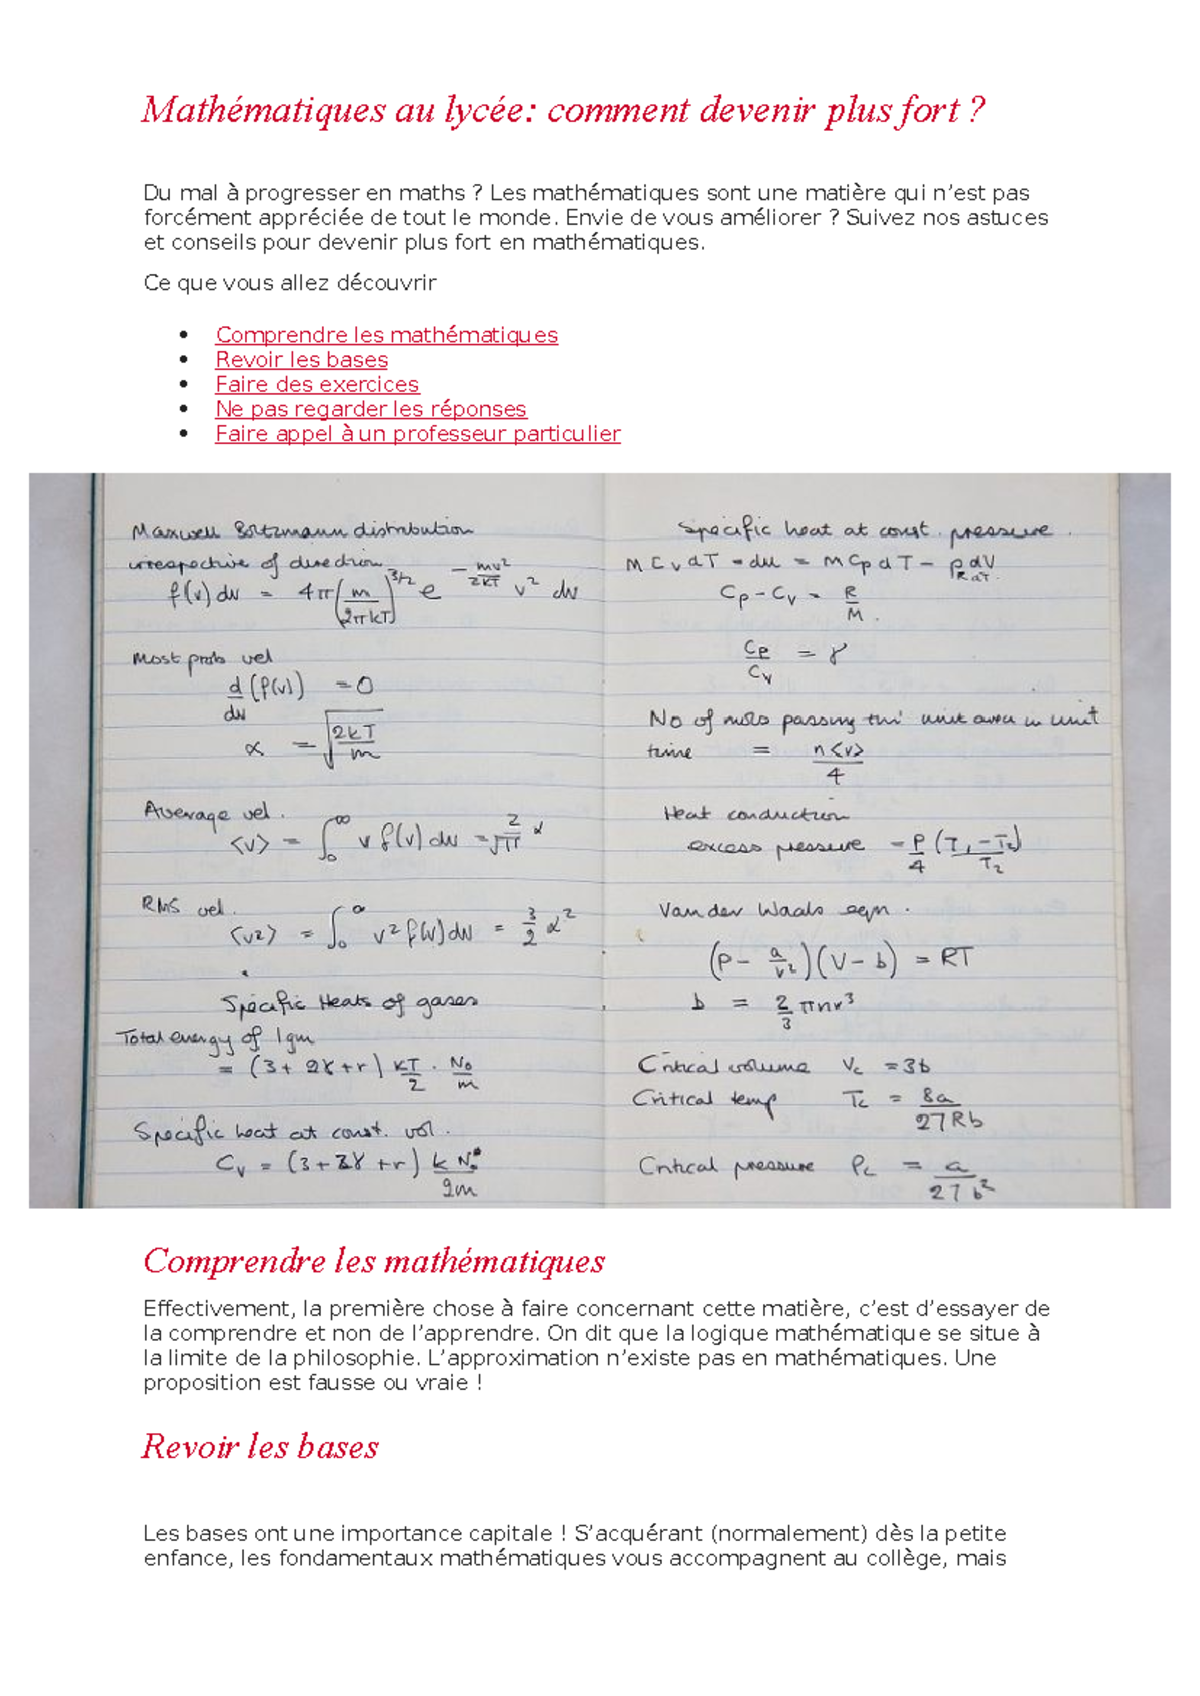 Mathématiques au lycée: comment devenir plus fort ?
Du mal à progresser en maths ? Les mathématiques sont une matière qui n’est pas
forcément appréciée de tout le monde. Envie de vous améliorer ? Suivez nos astuces
et conseils pour devenir plus fort en mathématiques.
Ce que vous allez découvrir
• Comprendre les mathématiques
• Revoir les bases
• Faire des exercices
• Ne pas regarder les réponses
• Faire appel à un professeur particulier
Maxwell Boltzmann distribution
irrespective of direction
f(v) dv = 4π (m/2πkT)^3/2 e^-mv²/2kT v² dv
Most prob vel
d/dv (f(v)) = 0
α = √(2kT/m)
Average vel.
<v> = ∫₀^∞ v f(v) dv = 2/√π α
RMS vel.
<v2> = ∫₀^α v² f(v) dv = 3/2 α²
Specific Heats of gases
Total energy of 1gm
= (3 + 2γ + r) kT/2 · N₀/m
Specific heat at const. vol.
Cv = (3 + 2γ + r) k N₀/2m
Specific heat at const. pressure.
M Cv dT = du = M Cp dT - p dV
Cp - Cv = R/M.
Cp/Cv = γ
No of mols passing thr' unit area in unit
time = n<v>/4
Heat conduction
excess pressure = P/4 (T₁ - T₂)/T₂
Van der Waals eqn.
(P - a/v²)(V - b) = RT
b = 2/3 πnr³
Critical volume Vc = 3b
Critical temp Tc = 8a/27Rb
Critical pressure Pc = a/27b²
Comprendre les mathématiques
Effectivement, la première chose à faire concernant cette matière, c’est d’essayer de
la comprendre et non de l’apprendre. On dit que la logique mathématique se situe à
la limite de la philosophie. L’approximation n’existe pas en mathématiques. Une
proposition est fausse ou vraie !
Revoir les bases
Les bases ont une importance capitale ! S’acquérant (normalement) dès la petite
enfance, les fondamentaux mathématiques vous accompagnent au collège, mais